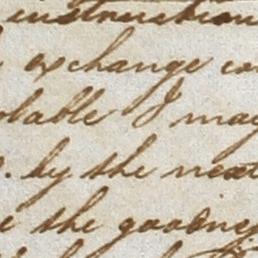 instruction
exchange
I may
by the next
the goodnes